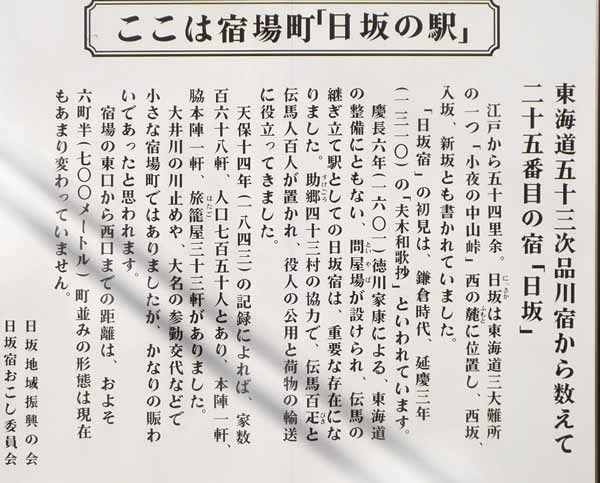 ここは宿場町「日坂の駅」
東海道五十三次品川宿から数えて
二十五番目の宿「日坂」
江戸から五十四里余。日坂は東海道三大難所
の一つ「小夜の中山峠」西の麓に位置し、西坂、
入坂、新坂とも書かれていました。
「日坂宿」の初見は、鎌倉時代、延慶三年
(一三一〇)の「夫木和歌抄」といわれています。
慶長六年(一六〇一)徳川家康による、東海道
の整備にともない、問屋場が設けられ、伝馬の
継ぎ立て駅としての日坂宿は、重要な存在にな
りました。助郷四十三村の協力で、伝馬百疋と
伝馬人百人が置かれ、役人の公用と荷物の輸送
に役立ってきました。
天保十四年(一八四三)の記録によれば、家数
百六十八軒、人口七百五十人とあり、本陣一軒、
脇本陣一軒、旅籠屋三十三軒がありました。
大井川の川止めや、大名の参勤交代などで
小さな宿場町ではありましたが、かなりの賑わ
いであったと思われます。
宿場の東口から西口までの距離は、およそ
六町半(七〇〇メートル)町並みの形態は現在
もあまり変わっていません。
日坂地域振興の会
日坂宿おこし委員会